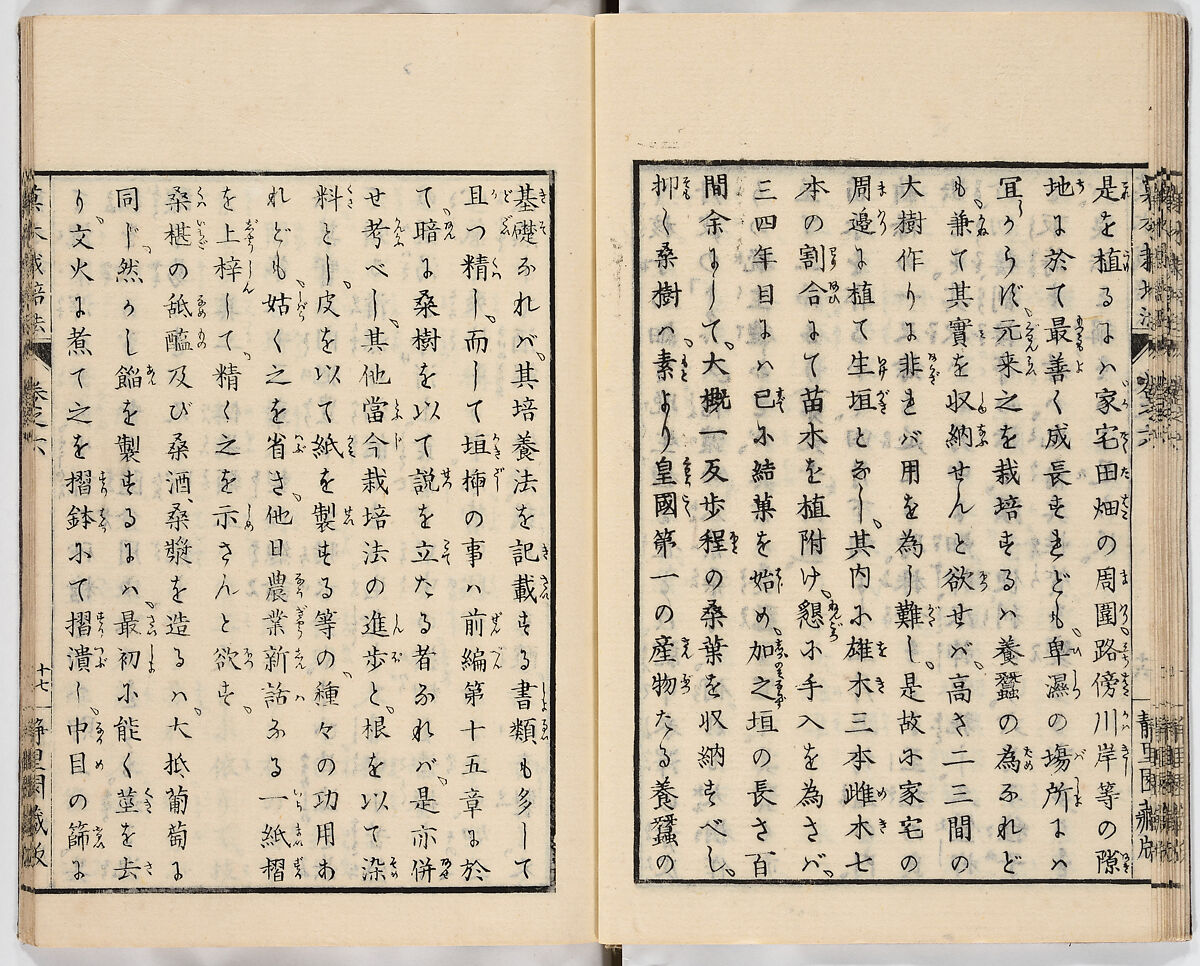 是を植るには家宅田畑の周圍路傍川岸等の隙
地に於て最善く成長すれども卑濕の塲所には
宜からず元来之を栽培するは養蠶の為なれど
も兼て其實を収納せんと欲せば高さ二三間の
大樹作りに非れば用を為し難し是故に家宅の
周邉に植て生垣となし其内に雄木三本雌木七
本の割合にて苗木を植附け懇に手入を為さば
三四年目には已に結菓を始め加之垣の長さ百
間余にして大概一反歩程の桑葉を収納すべし
抑〻桑樹は素より皇國第一の産物たる養蠶の
基礎なれば其培養法を記載する書類も多して
且つ精し而して垣揷の事は前編第十五章に於
て暗に桑樹を以て説を立たる者なれば是亦併
せ考べし其他當今栽培法の進歩と根を以て染
料とし皮を以て紙を製する等の種々の功用あ
れども姑く之を省き他日農業新話なる一紙摺
を上梓して精く之を示さんと欲す
桑椹の䑛醞及び桑酒桑漿を造るは大抵葡萄に
同じ然かし餡を製するには最初に能く莖を去
り文火に煮て之を摺鉢にて摺潰し巾目の篩に
巻之六
十七